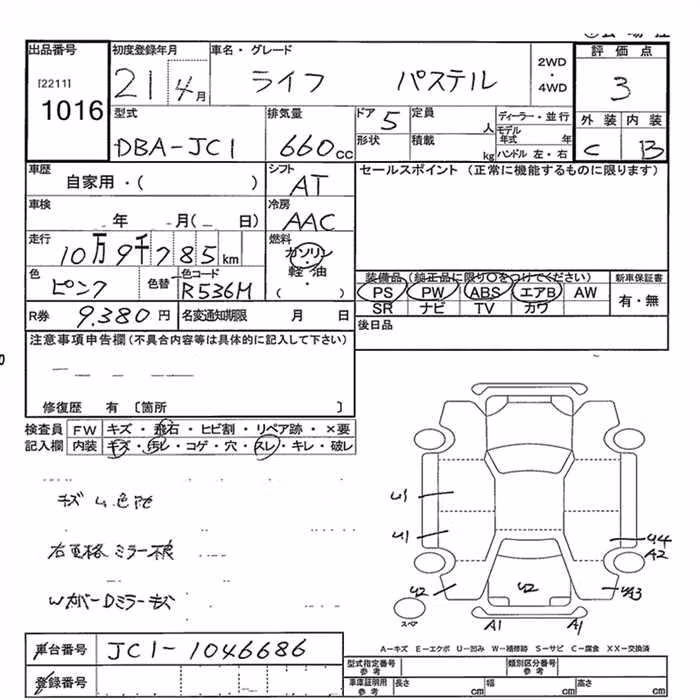 出品番号 初度登録年月 車名・グレード 2WD・4WD 評価点
[2211] 1016 21 4月 ライフ パステル 3
型式 排気量 ドア 5 定員 人 ディーラー・並行 外装 内装
DBA-JC1 660cc 形状 積載 kg モデル年式 年 ハンドル 左・右 C B
車歴 シフト セールスポイント (正常に機能するものに限ります)
自家用・( ) AT
車検 冷房
年 月( 日) AAC
走行 燃料
10万9千785km ガソリン・軽油・( )
色 色替 色コード 装備品 (純正品に限り○をつけてください) 新車保証書
ピンク R536M PS PW ABS エアB AW 有・無
SR ナビ TV カワ
R券 9,380円 名変通知期限 月 日 後日品
注意事項申告欄 (不具合内容等は具体的に記入して下さい)
修復歴 有 〔箇所 〕
検査員 FW キズ・飛石・ヒビ割・リペア跡・×要
記入欄 内装 キズ・汚レ・コゲ・穴・スレ・キレ・破レ
U1
U1 U4
A2
ミラー
Wカバー Dミラー キズ
U2 U2
スペア A1 A1
A-キズ E-エクボ U-凹み W-補修跡 S-サビ C-腐食 XX-交換済
車台番号 JC1-1046686 型式指定番号 参考 類別区分番号 参考
登録番号 車庫証明用 参考 長さ cm 幅 cm 高さ cm